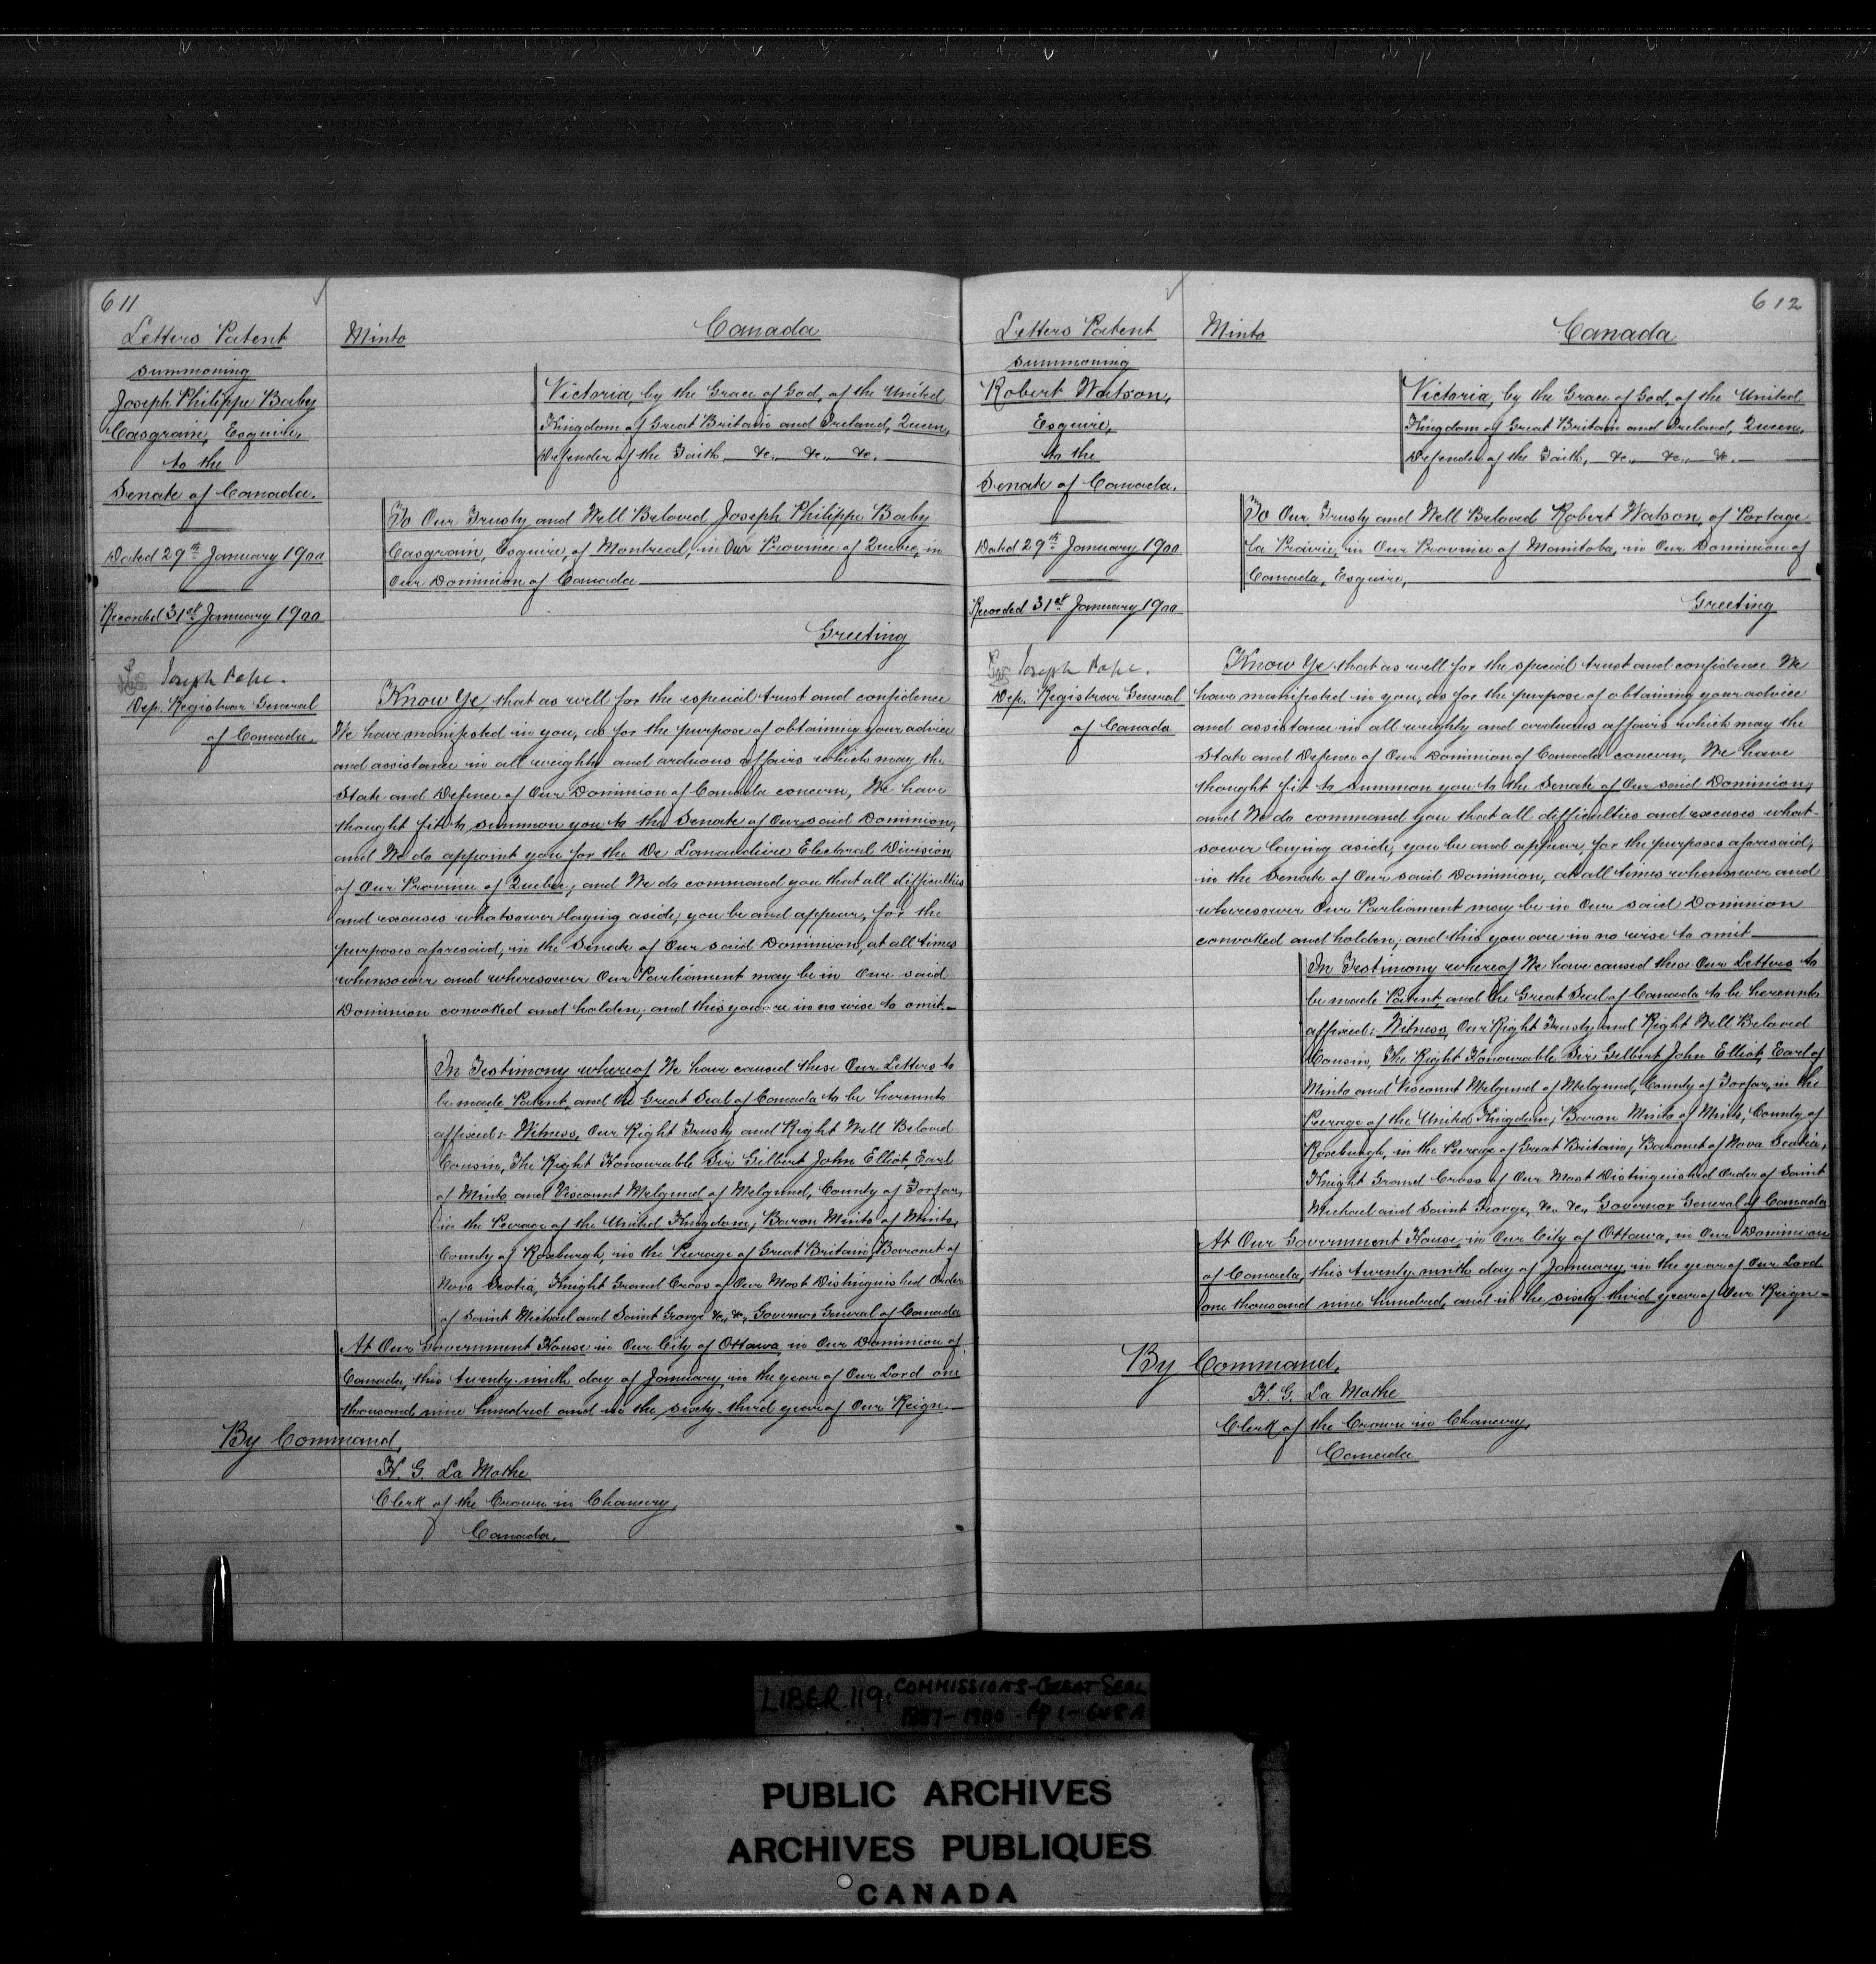 611
Letters Patent
summoning
Joseph Philippe Baby
Casgrain, Esquire,
to the
Senate of Canada.
Dated 29th January 1900
Recorded 31st January 1900
Joseph Pope.
Dep. Registrar General
of Canada.
Minto
Canada
Victoria, by the Grace of God, of the United
Kingdom of Great Britain and Ireland, Queen,
Defender of the Faith, &c., &c., &c.
To Our Trusty and Well Beloved Joseph Philippe Baby
Casgrain, Esquire, of Montreal, in Our Province of Quebec, in
Our Dominion of Canada
Greeting
Know Ye, that as well for the especial trust and confidence
We have manifested in you, as for the purpose of obtaining your advice
and assistance in all weighty and arduous affairs which may the
State and Defence of Our Dominion of Canada concern, We have
thought fit to summon you to the Senate of Our said Dominion,
and We do appoint you for the De Lanaudière Electoral Division
of Our Province of Quebec; and We do command you that all difficulties
and excuses whatsoever laying aside, you be and appear, for the
purposes aforesaid, in the Senate of Our said Dominion, at all times
whensoever and wheresoever Our Parliament may be in Our said
Dominion convoked and holden; and this you are in no wise to omit.
In Testimony whereof We have caused these Our Letters to
be made Patent, and the Great Seal of Canada to be hereunto
affixed: Witness, Our Right Trusty and Right Well Beloved
Cousin, The Right Honourable Sir Gilbert John Elliot, Earl
of Minto and Viscount Melgund of Melgund, County of Forfar,
in the Peerage of the United Kingdom; Baron Minto of Minto,
County of Roxburgh, in the Peerage of Great Britain, Baronet of
Nova Scotia, Knight Grand Cross of Our Most Distinguished Order
of Saint Michael and Saint George &c., &c., Governor General of Canada
At Our Government House in Our City of Ottawa, in Our Dominion of
Canada, this twenty-ninth day of January, in the year of Our Lord one
thousand nine hundred and in the sixty-third year of Our Reign.
By Command,
H. G. La Mothe
Clerk of the Crown in Chancery,
Canada.
612
Letters Patent
summoning
Robert Watson,
Esquire,
to the
Senate of Canada.
Dated 29th January 1900
Recorded 31st January 1900
Joseph Pope.
Dep. Registrar General
of Canada
Minto
Canada
Victoria, by the Grace of God, of the United
Kingdom of Great Britain and Ireland, Queen,
Defender of the Faith, &c., &c., &c.
To Our Trusty and Well Beloved Robert Watson, of Portage
La Prairie, in Our Province of Manitoba, in Our Dominion of
Canada, Esquire,
Greeting
Know Ye that as well for the special trust and confidence We
have manifested in you, as for the purpose of obtaining your advice
and assistance in all weighty and arduous affairs which may the
State and Defence of Our Dominion of Canada concern, We have
thought fit to summon you to the Senate of Our said Dominion;
and We do command you that all difficulties and excuses what-
soever laying aside, you be and appear, for the purposes aforesaid,
in the Senate of Our said Dominion, at all times whensoever and
wheresoever Our Parliament may be in Our said Dominion
convoked and holden; and this you are in no wise to omit
In Testimony whereof We have caused these Our Letters to
be made Patent, and the Great Seal of Canada to be hereunto
affixed: Witness, Our Right Trusty and Right Well Beloved
Cousin, The Right Honourable Sir Gilbert John Elliot, Earl of
Minto and Viscount Melgund of Melgund, County of Forfar, in the
Peerage of the United Kingdom; Baron Minto of Minto, County of
Roxburgh, in the Peerage of Great Britain; Baronet of Nova Scotia,
Knight Grand Cross of Our Most Distinguished Order of Saint
Michael and Saint George, &c., &c., Governor General of Canada
At Our Government House, in Our City of Ottawa, in Our Dominion
of Canada, this twenty-ninth day of January, in the year of Our Lord
one thousand nine hundred, and in the sixty-third year of Our Reign
By Command,
H. G. La Mothe
Clerk of the Crown in Chancery,
Canada
LIBER.119: COMMISSIONS-GREAT SEAL
1887-1900 - Pp 1-648A
PUBLIC ARCHIVES
ARCHIVES PUBLIQUES
CANADA